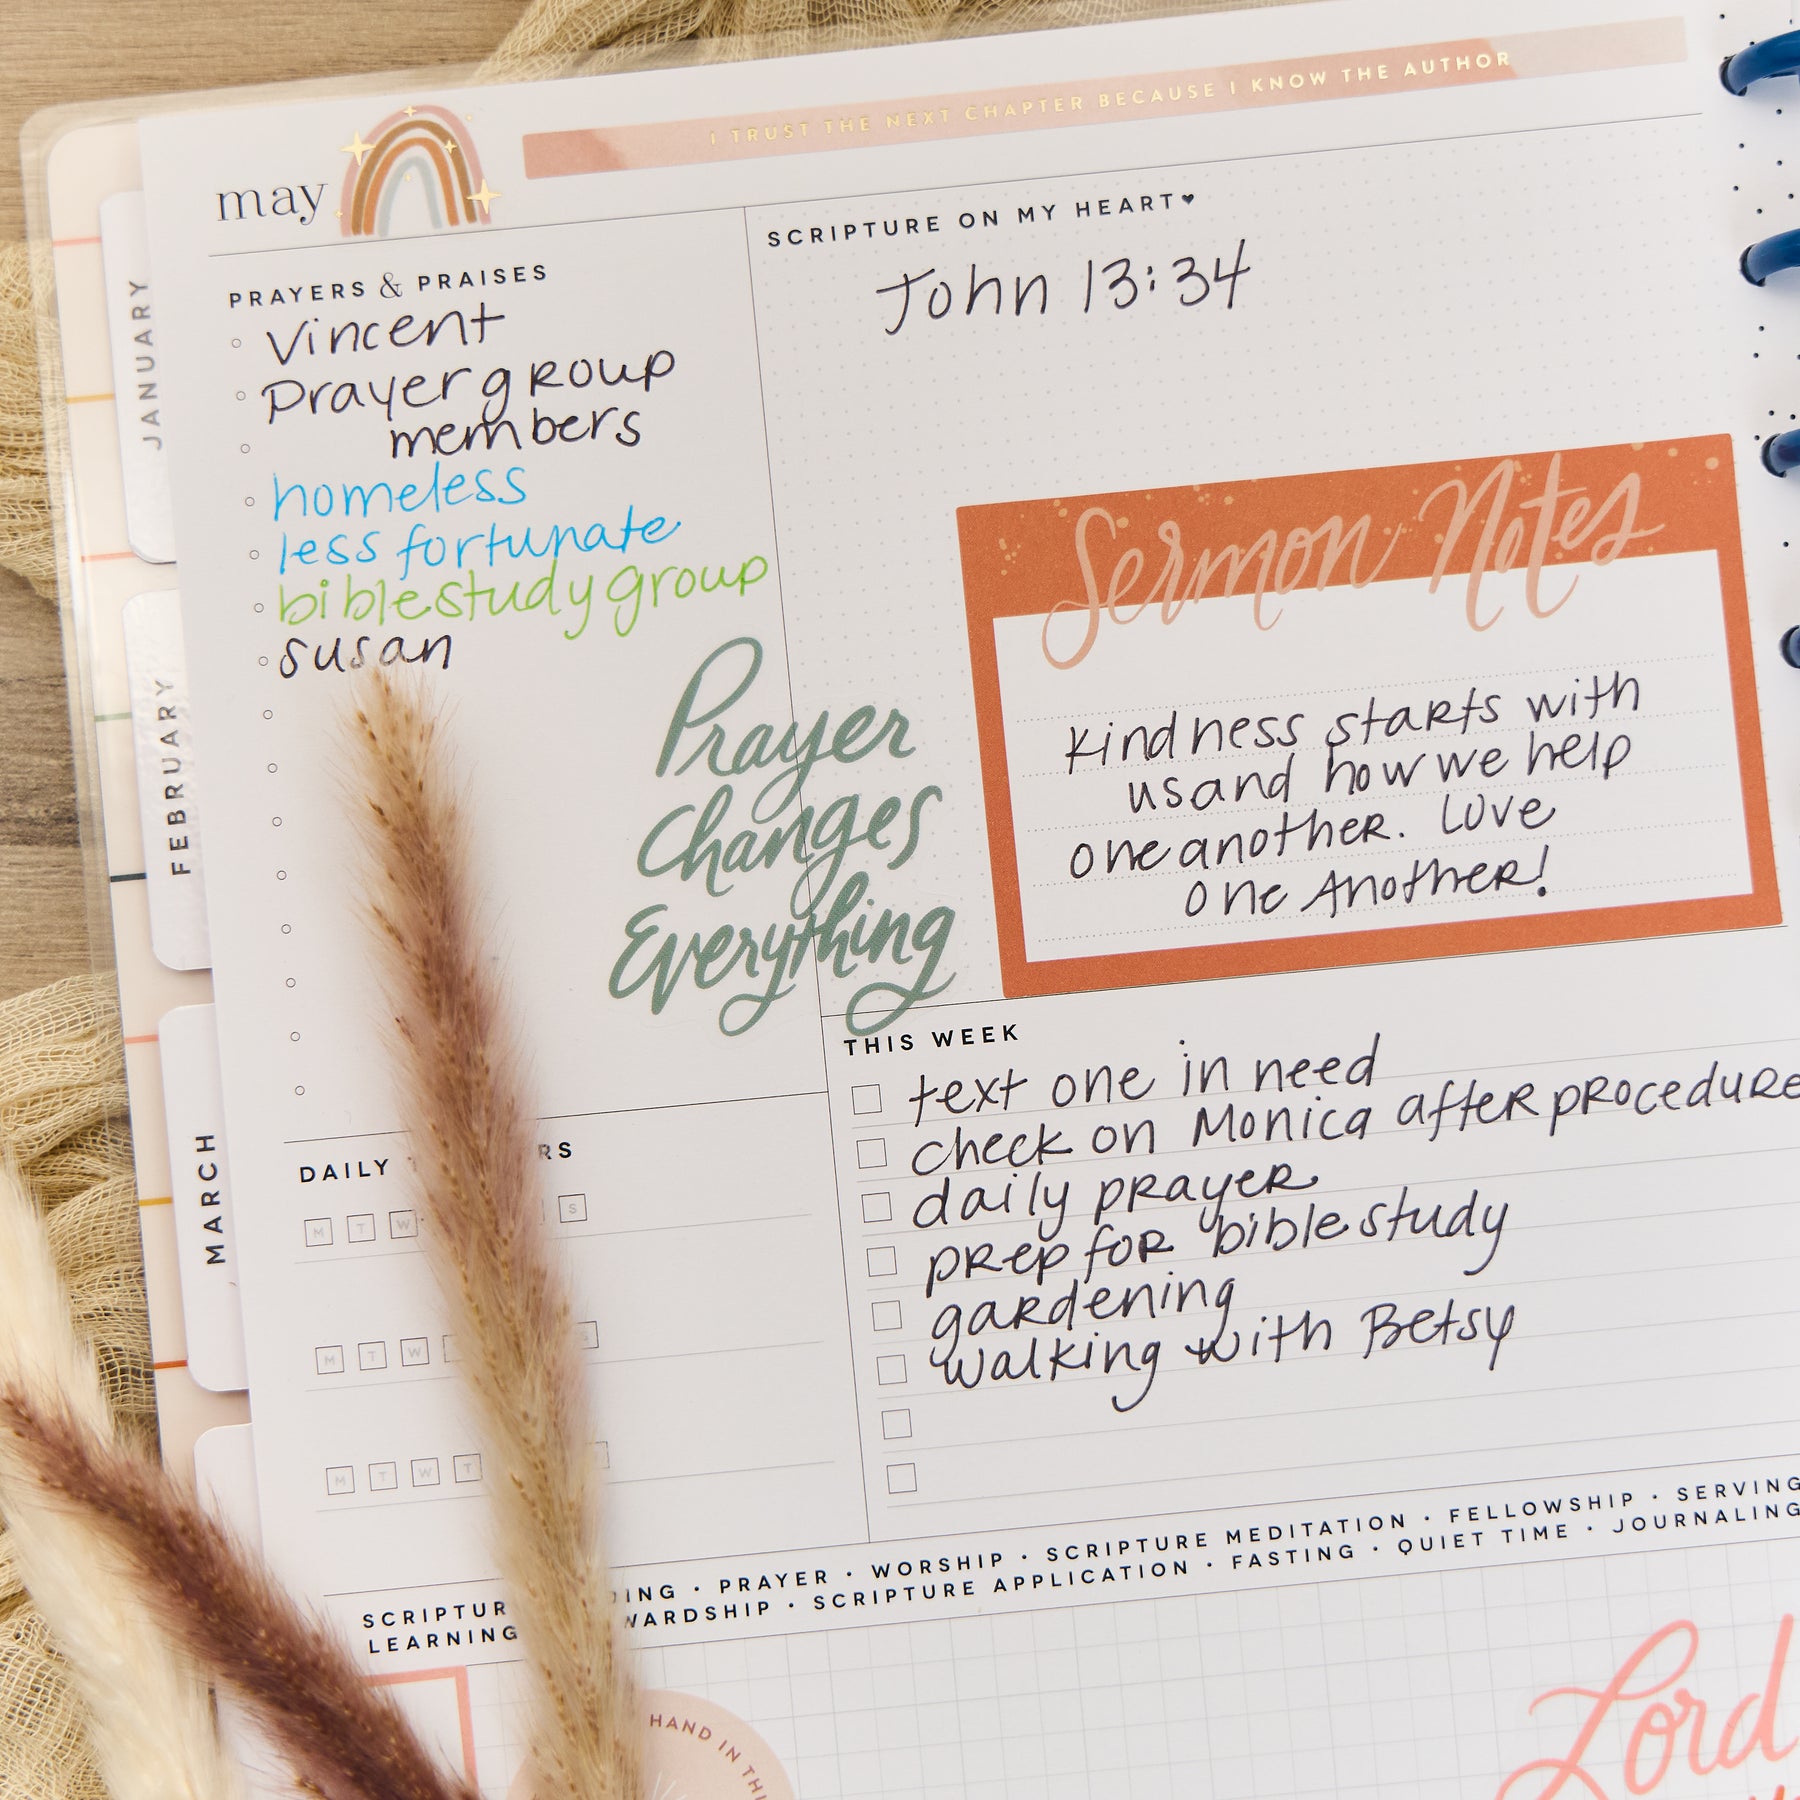 I TRUST THE NEXT CHAPTER BECAUSE I KNOW THE AUTHOR
may
JANUARY
FEBRUARY
MARCH
PRAYERS & PRAISES
Vincent
Prayer group
members
homeless
less fortunate
bible study group
susan
SCRIPTURE ON MY HEART♥
John 13:34
Sermon Notes
Kindness starts with
us and how we help
one another. Love
one Another!
Prayer
Changes
Everything
THIS WEEK
text one in need
check on Monica after procedure
daily prayer
prep for bible study
gardening
walking with Betsy
DAILY
M T W S
M T W
M T W T
PRAYER • WORSHIP • SCRIPTURE MEDITATION • FELLOWSHIP • SERVING
LEARNING • SCRIPTURE APPLICATION • FASTING • QUIET TIME • JOURNALING
HAND IN
Lord